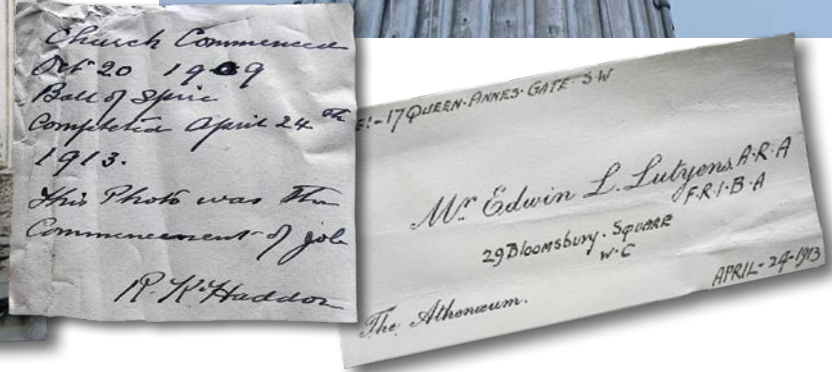 Church Commenced
Oct 20 1909
Ball of Spire
Completed April 24th
1913.
This Photo was the
Commencement of job
R. K. Haddon
E:-17 QUEEN·ANNES·GATE·S·W
Mr Edwin L. Lutyens. A·R·A
F·R·I·B·A
29 Bloomsbury. SQUARE
W·C
APRIL-24-1913
The Athenæum.